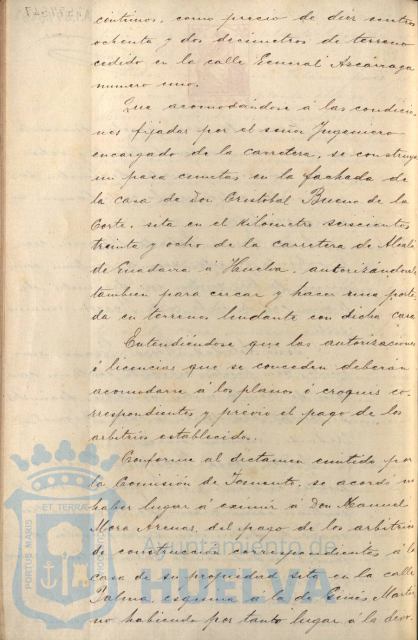 centimos, como precio de diez metros
ochenta y dos decimetros de terreno
cedido en la calle General Azcárraga
numero uno.
Que acomodándose á las condicio-
nes fijadas por el señor Ingeniero
encargado de la carretera, se construya
un pasa cunetas, en la fachada de
la casa de Don Cristobal Bueno de la
Corte, sita en el kilómetro seiscientos
treinta y ocho de la carretera de Alcalá
de Guadaira á Huelva, autorizándole
tambien para cercar y hacer una porta-
da en terrenos lindante con dicha casa
Entendiéndose que las autorizaciones
ó licencias que se conceden deberán
acomodarse á los planos ó croquis co-
rrespondientes y previo el pago de los
arbitrios establecidos.
Conforme al dictamen emitido por
la Comisión de Fomento, se acordó no
haber lugar á eximir á Don Manuel
Mora Arenas, del pago de los arbitrios
de construccion correspondientes á la
casa de su propiedad sita en la calle
Palma esquina á la de Ginés Martin
no habiendo por tanto lugar á la devo-
PORTUS MARIS
ET TERRÆ
Ayuntamiento de
HUELVA